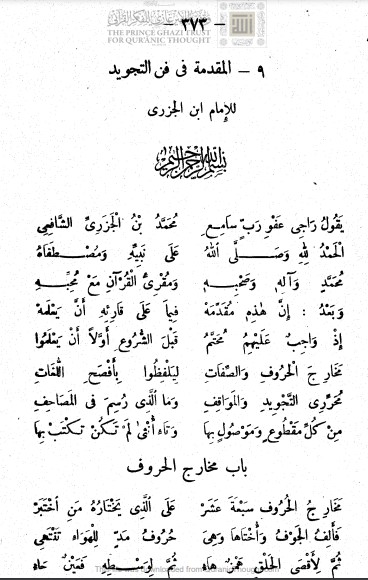 - ٣٧٣ -
THE PRINCE GHAZI TRUST
FOR QUR'ANIC THOUGHT
٩ - المقدمة فى فن التجويد
للإمام ابن الجزرى
بسم الله الرحمن الرحيم
يَقُولُ رَاجِى عَفْوِ رَبٍّ سَامِعِ مُحَمَّدُ بْنُ الْجَزَرِىِّ الشَّافِعِى
الْحَمْدُ لِلهِ وَصَلَّى اللهُ عَلَى نَبِيِّهِ وَمُصْطَفَاهُ
مُحَمَّدٍ وَآلِهِ وَصَحْبِهِ وَمُقْرِئِ الْقُرْآنِ مَعْ مُحِبِّهِ
وَبَعْدُ : إِنَّ هٰذِهِ مُقَدِّمَهْ فِيمَا عَلَى قَارِئِهِ أَنْ يَعْلَمَهْ
إِذْ وَاجِبٌ عَلَيْهِمُ مُحَتَّمُ قَبْلَ الشُّرُوعِ أَوَّلاً أَنْ يَعْلَمُوا
مَخَارِجَ الْحُرُوفِ وَالصِّفَاتِ لِيَلْفِظُوا بِأَفْصَحِ اللُّغَاتِ
مُحَرِّرِى التَّجْوِيدِ وَالمَوَاقِفِ وَمَا الَّذِى رُسِمَ فى المَصَاحِفِ
مِنْ كُلِّ مَقْطُوعٍ وَمَوْصُولٍ بِهَا وَتَاءِ أُنْثَى لَمْ تَكُنْ تُكْتَبْ بِهَا
باب مخارج الحروف
مَخَارِجُ الْحُرُوفِ سَبْعَةَ عَشَرْ عَلَى الَّذِى يَخْتَارُهُ مَنِ اخْتَبَرْ
فَأَلِفُ الْجَوْفِ وَأُخْتَاهَا وَهِىَ حُرُوفُ مَدٍّ لِلْهَوَاءِ تَنْتَهِى
ثُمَّ لِأَقْصَى الْحَلْقِ هَمْزٌ هَاءُ ثُمَّ لِوَسْطِهِ فَعَيْنٌ حَاءُ